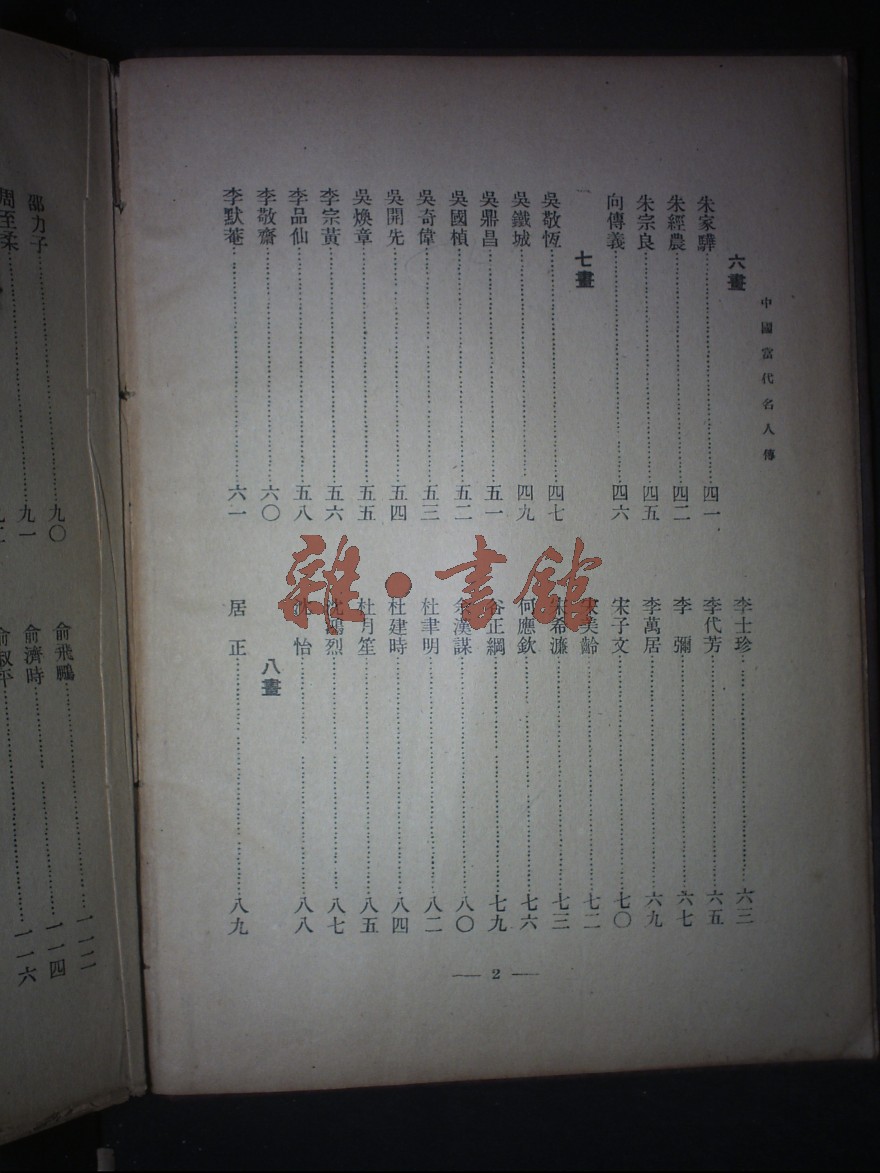 中國當代名人傳
六畫
朱家驊 四一
朱經農 四二
朱宗良 四五
向傳義 四六
七畫
吳敬恆 四七
吳鐵城 四九
吳鼎昌 五一
吳國楨 五二
吳奇偉 五三
吳開先 五四
吳煥章 五五
李宗黃 五六
李品仙 五八
李敬齋 六〇
李默菴 六一
李士珍 六三
李代芳 六五
李彌 六七
李萬居 六九
宋子文 七〇
宋美齡 七二
宋希濂 七三
何應欽 七六
谷正綱 七九
余漢謀 八〇
杜聿明 八二
杜建時 八四
杜月笙 八五
沈鴻烈 八七
怡 八八
八畫
居正 八九
2
邵力子 九〇
周至柔 九一
俞飛鵬 一一二
俞濟時 一一四
俞叔平 一一六
雜·書館